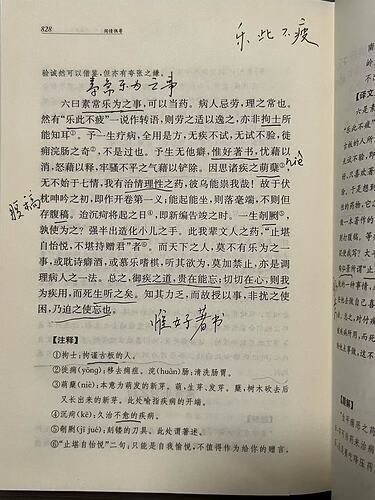 828
闲情偶寄
乐此不疲
验诚然可以借鉴,但亦有夸张之嫌。
素常乐为之事
六曰素常乐为之事,可以当药。病人忌劳,理之常也。
然有“乐此不疲”一说作转语,则劳之适以逸之,亦非拘士所
能知耳①。予一生疗病,全用是方,无疾不试,无试不验,徙
痈浣肠之奇②,不是过也。予生无他癖,惟好著书,忧藉以
消,怒藉以释,牢骚不平之气藉以铲除。因思诸疾之萌蘖③,
niè
无不始于七情,我有治情理性之药,彼乌能祟我哉!故于伏
枕呻吟之初,即作开卷第一义;能起能坐,则落毫端,不则但
存腹稿。迨沉疴将起之日④,即新编告竣之时。一生剞劂⑤,
腹稿
孰使为之?强半出造化小儿之手。此我辈文人之药,“止堪
自怡悦,不堪持赠君”者⑥。而天下之人,莫不有乐为之一
事,或耽诗癖酒,或慕乐嗜棋,听其欲为,莫加禁止,亦是调
理病人之一法。总之,御疾之道,贵在能忘;切切在心,则我
为疾用,而死生听之矣。知其力乏,而故授以事,非扰之使
困,乃迫之使忘也。
惟好著书
【注释】
①拘士:拘谨古板的人。
②徙痈(yōng):移去痈疽。浣(huàn)肠:清洗肠胃。
③萌蘖(niè):本意为萌发的新芽。萌,生芽、发芽。蘖,树木砍去后
又长出来的新芽。此处喻指疾病的开端。
④沉疴(kē):久治不愈的疾病。
⑤剞劂(jī jué):刻镂的刀具。此处谓著述。
⑥“止堪自怡悦”二句:只能是自我愉悦,不值得作为给你的赠言。